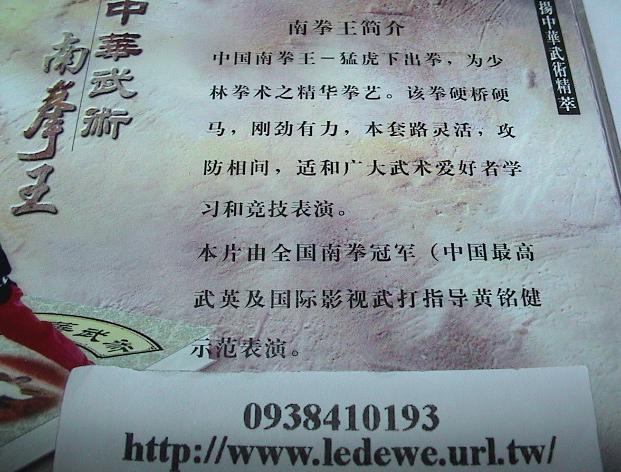 中華武術
南拳王
揚中華武術精萃
南拳王简介
中国南拳王－猛虎下出拳，为少
林拳术之精华拳艺。该拳硬桥硬
马，刚劲有力，本套路灵活，攻
防相间，适和广大武术爱好者学
习和竞技表演。
本片由全国南拳冠军（中国最高
武英及国际影视武打指导黄铭健
示范表演。
華武
0938410193
http://www.ledewe.url.tw/